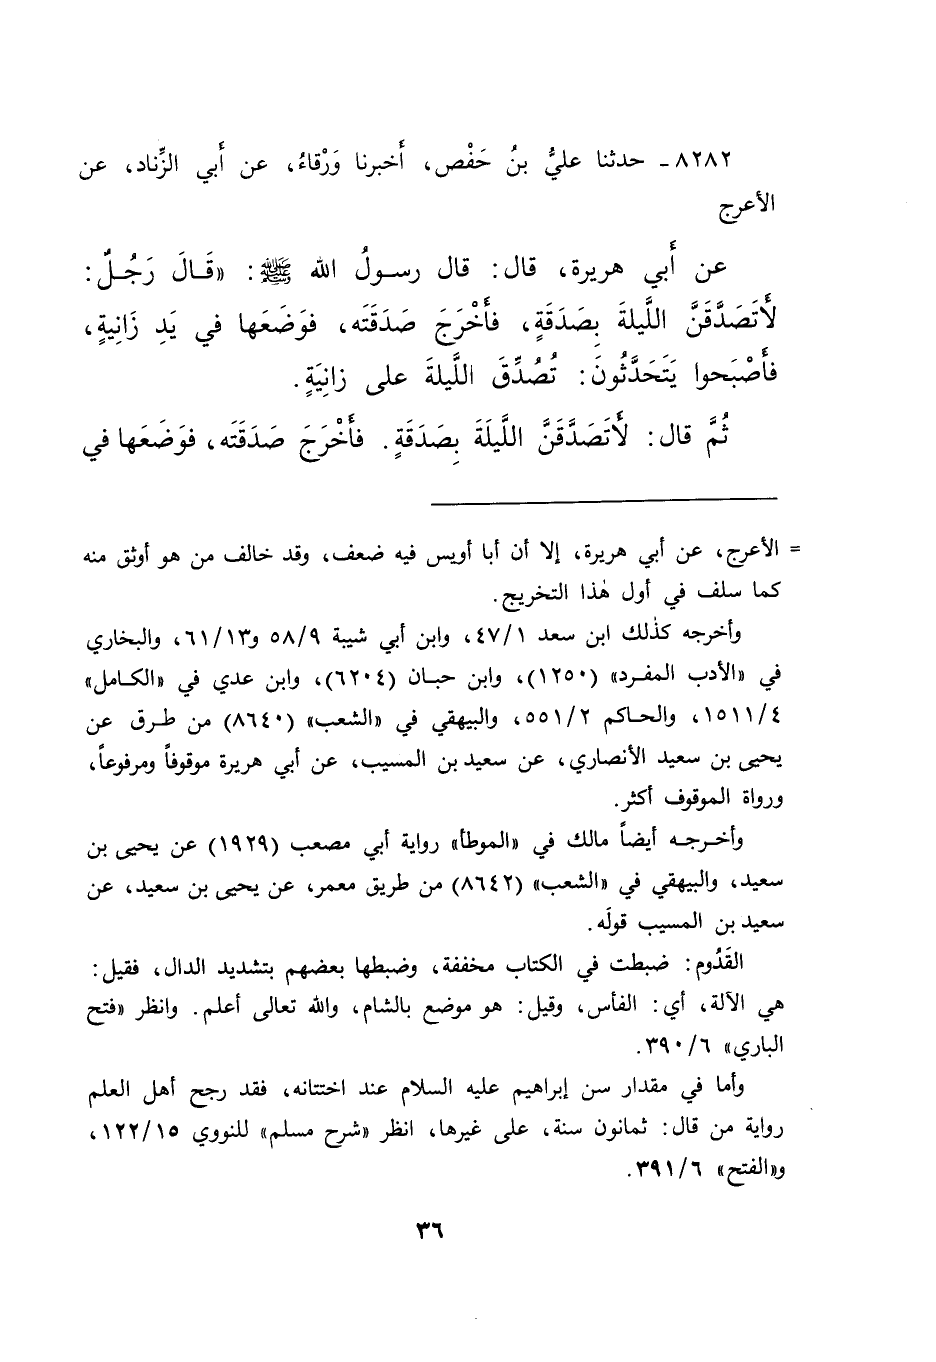 ٨٢٨٢ـ حدثنا عليُّ بنُ حَفْص، أَخبرنا وَرْقاءُ، عن أَبي الزِّناد، عن
الأعرج
عن أَبي هريرة، قال: قال رسولُ الله ﷺ: «قَالَ رَجُلٌ:
لأَتَصَدَّقَنَّ اللَّيلةَ بِصَدَقَةٍ، فأَخْرَجَ صَدَقَتَه، فوَضَعَها في يَدِ زَانِيةٍ،
فأَصْبَحوا يَتَحَدَّثُونَ: تُصُدِّقَ اللَّيلةَ على زانِيَةٍ.
ثُمَّ قال: لأَتَصَدَّقَنَّ اللَّيلَةَ بِصَدَقَةٍ. فأَخْرَجَ صَدَقَتَه، فوَضَعَها في
= الأعرج، عن أبي هريرة، إلا أن أبا أويس فيه ضعف، وقد خالف من هو أوثق منه
كما سلف في أول هٰذا التخريج.
وأخرجه كذٰلك ابن سعد ٤٧/١، وابن أبي شيبة ٥٨/٩ و٦١/١٣، والبخاري
في «الأدب المفرد» (١٢٥٠)، وابن حبان (٦٢٠٤)، وابن عدي في «الكامل»
١٥١١/٤، والحاكم ٥٥١/٢، والبيهقي في «الشعب» (٨٦٤٠) من طرق عن
يحيى بن سعيد الأنصاري، عن سعيد بن المسيب، عن أبي هريرة موقوفاً ومرفوعاً،
ورواة الموقوف أكثر.
وأخرجه أيضاً مالك في «الموطأ» رواية أبي مصعب (١٩٢٩) عن يحيى بن
سعيد، والبيهقي في «الشعب» (٨٦٤٢) من طريق معمر، عن يحيى بن سعيد، عن
سعيد بن المسيب قولَه.
القَدُوم: ضبطت في الكتاب مخففة، وضبطها بعضهم بتشديد الدال، فقيل:
هي الآلة، أي: الفأس، وقيل: هو موضع بالشام، والله تعالى أعلم. وانظر «فتح
الباري» ٣٩٠/٦.
وأما في مقدار سن إبراهيم عليه السلام عند اختتانه، فقد رجح أهل العلم
رواية من قال: ثمانون سنة، على غيرها، انظر «شرح مسلم» للنووي ١٢٢/١٥،
و«الفتح» ٣٩١/٦.
٣٦